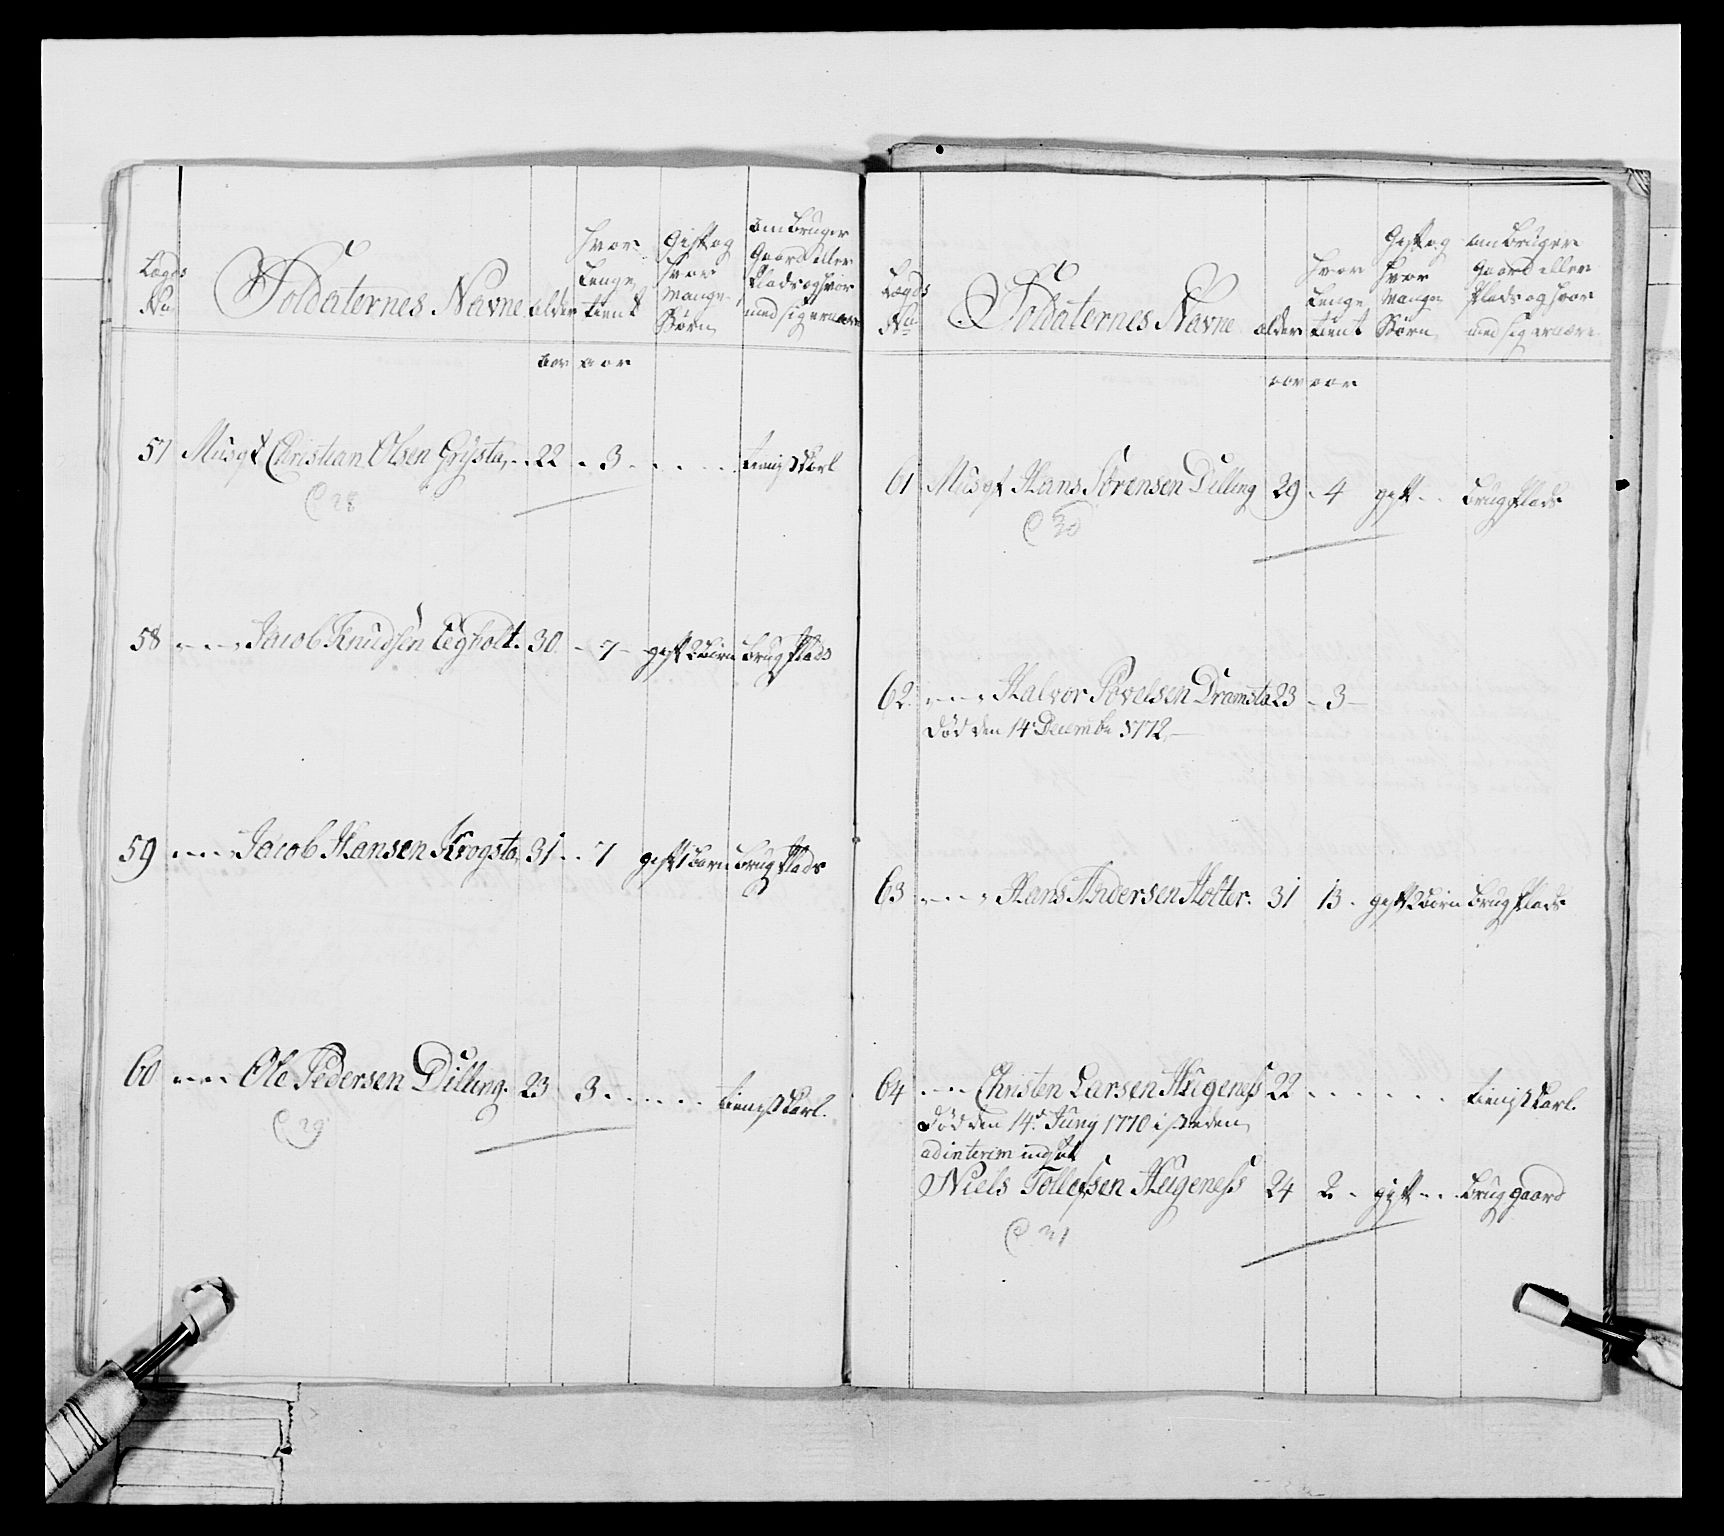 Lægds
No
Soldaternes Navne
alder
hvor
lenge
tient
Gift og
hvor
mange
Børn
om bruger
Gaard eller
Plads og hvor
med sig ernære
aar aar
57 Musqt Christian Olsen Grÿsta 22 3 tienistkarl
C 28
58 Jacob Knudsen Eegholt 30 7 gift 2 børn brug Plads
59 Jacob Hansen Krogsta 31 7 gift 1 barn brug Plads
60 Ole Pedersen Dilling 23 3 tienistkarl
C 29
Lægds
No
Soldaternes Navne
alder
hvor
lenge
tient
Gift og
hvor
mange
Børn
om bruger
gaard eller
Plads og hvor
med sig ernære
aar aar
61 Musqt Hans Sørensen Dilling 29 4 gift brug Plads
C 30
62 Halvor Povelsen Dramsta 23 3
død den 14 Decembr 1772
63 Hans Andersen Holter 31 13 gift 2 børn brug Plads
64 Christen Larsen Hugeness 22 tienistkarl
død den 14de Juny 1770 i steden
ad interim indsat
Niels Tollefsen Hugeness 24 2 gift brug gaard
C 31